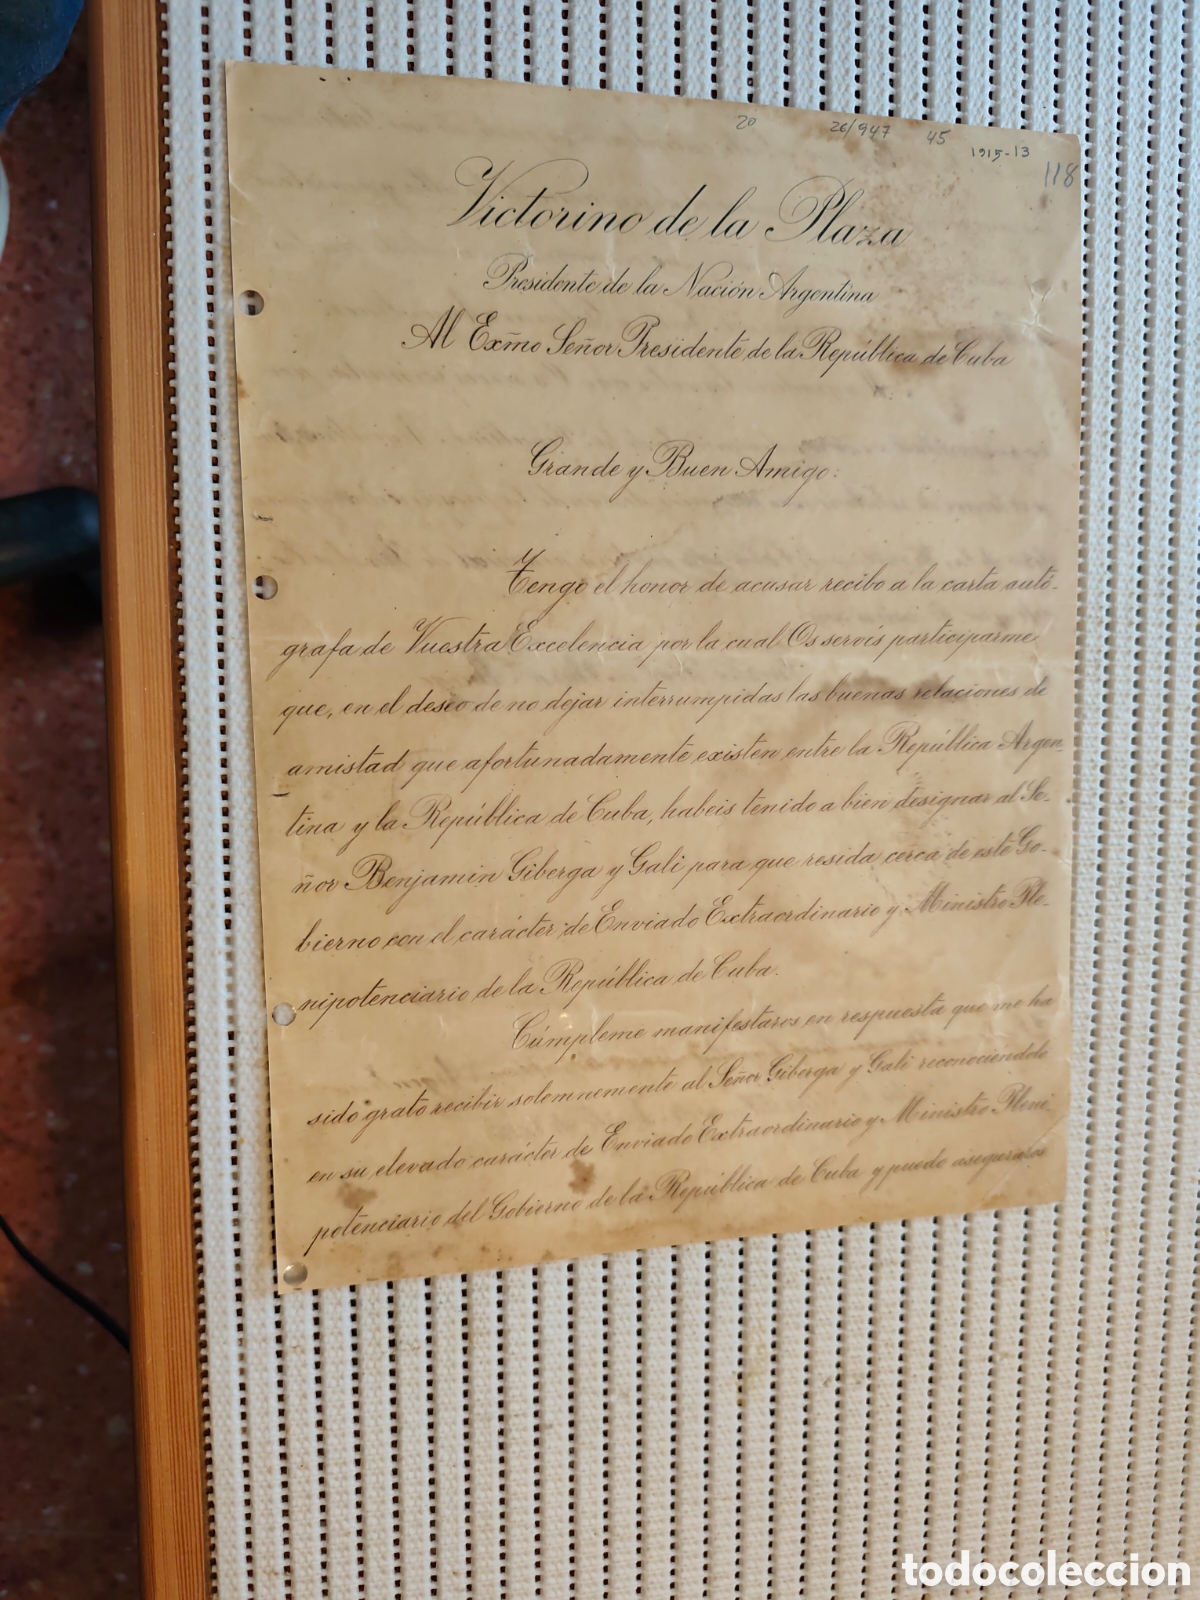 20 26/947 45 1915-13 118
Victorino de la Plaza
Presidente de la Nación Argentina
Al Exmo Señor Presidente de la República de Cuba
Grande y Buen Amigo:
Tengo el honor de acusar recibo a la carta autó-
grafa de Vuestra Excelencia por la cual Os servís participarme
que, en el deseo de no dejar interrumpidas las buenas relaciones de
amistad que afortunadamente existen entre la República Argen
tina y la República de Cuba, habeis tenido a bien designar al Se-
ñor Benjamin Giberga y Gali para que resida cerca de este Go-
bierno con el carácter de Enviado Extraordinario y Ministro Ple-
nipotenciario de la República de Cuba.
Cúmpleme manifestaros en respuesta que me ha
sido grato recibir solemnemente al Señor Giberga y Gali reconociéndole
en su elevado carácter de Enviado Extraordinario y Ministro Pleni
potenciario del Gobierno de la República de Cuba y puedo aseguraros
todocoleccion